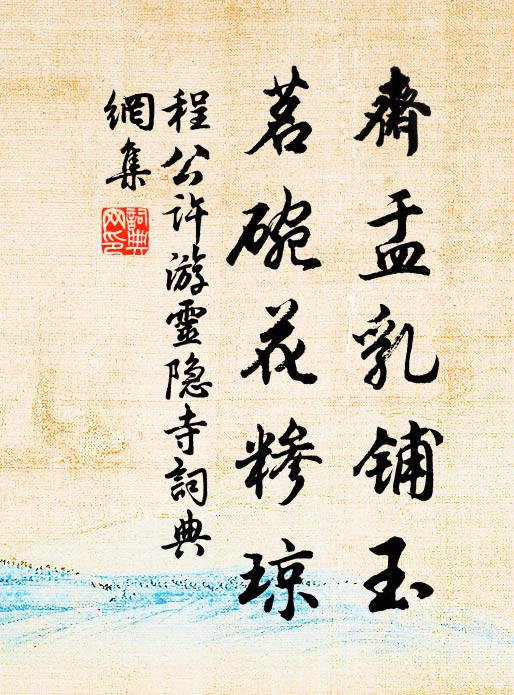 齋盂乳铺玉
茗碗花糁琼
程公许游靈隐寺詞典
網集
詞典
网印